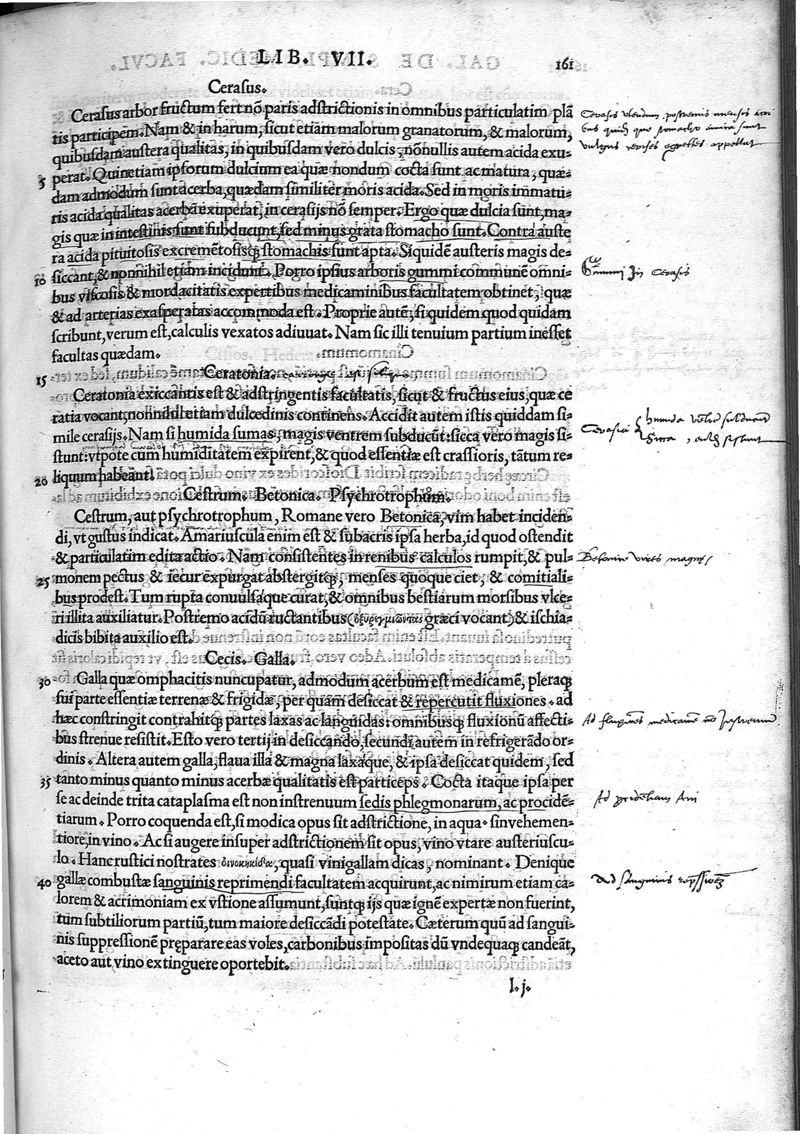 LIB. VII.
161
Cerasus.
Cerasus arbor fructum fert nõ paris adstrictionis in omnibus particulatim plã
tis participem. Nam & in harum, sicut etiam malorum granatorum, & malorum,
quibusdam austera qualitas, in quibusdam vero dulcis, nõnullis autem acida exu-
5 perat. Quinetiam ipsorum dulcium ea quæ nondum cocta sunt ac matura, quæ-
dam admodum sunt acerba, quædam similiter moris acida. Sed in moris immatu-
ris acida qualitas acerbã exuperat, in cerasijs nõ semper. Ergo quæ dulcia sunt, ma-
gis quæ in intestinis sunt subducunt, sed minus grata stomacho sunt. Contra auste
ra acida pituitosis excremẽtosisq; stomachis sunt apta. Siquidẽ austeris magis de-
10 siccant, & nonnihil etiam incidunt. Porro ipsius arboris gummi communẽ omni-
bus viscosis & mordacitatis expertibus medicaminibus facultatem obtinet, quæ
& ad arterias exasperatas accommoda est. Proprie autẽ, si quidem quod quidam
scribunt, verum est, calculis vexatos adiuuat. Nam sic illi tenuium partium inesset
facultas quædam.
15 Ceratonia.
Ceratonia exiccantis est & adstringentis facultatis, sicut & fructus eius, quæ ce
ratia vocant, nonnihil etiam dulcedinis continens. Accidit autem istis quiddam si-
mile cerasijs. Nam si humida sumas, magis ventrem subducũt: sicca vero magis si-
stunt: vtpote cum humiditatem expirent, & quod essentiæ est crassioris, tãtum re-
20 liquum habeant.
Cestrum. Betonica. Psychrotrophum.
Cestrum, aut psychrotrophum, Romane vero Betonica, vim habet inciden-
di, vt gustus indicat. Amariuscula enim est & subacris ipsa herba, id quod ostendit
& particulatim edita actio. Nam consistentes in renibus calculos rumpit, & pul-
25 monem pectus & iecur expurgat abstergitq;, menses quoque ciet, & comitiali-
bus prodest. Tum rupta conuulsaque curat, & omnibus bestiarum morsibus vlce-
ri illita auxiliatur. Postremo acidũ ructantibus (ὀξυρεγμιῶντας græci vocant) & ischia-
dicis bibita auxilio est.
Cecis. Galla.
30 Galla quæ omphacitis nuncupatur, admodum acerbum est medicamẽ, pleraq;
sui parte essentiæ terrenæ & frigidæ, per quam desiccat & repercutit fluxiones. ad
hæc constringit contrahitq; partes laxas ac languidas: omnibusq; fluxionũ affecti-
bus strenue resistit. Esto vero tertij in desiccando, secundi autem in refrigerãdo or-
dinis. Altera autem galla, flaua illa & magna laxaque, & ipsa desiccat quidem, sed
35 tanto minus quanto minus acerbæ qualitatis est particeps. Cocta itaque ipsa per
se ac deinde trita cataplasma est non instrenuum sedis phlegmonarum, ac procidẽ-
tiarum. Porro coquenda est, si modica opus sit adstrictione, in aqua. sin vehemen-
tiore, in vino. Ac si augere insuper adstrictionem sit opus, vino vtare austeriuscu-
lo. Hanc rustici nostrates quasi vinigallam dicas, nominant. Denique
40 gallæ combustæ sanguinis reprimendi facultatem acquirunt, ac nimirum etiam ca-
lorem & acrimoniam ex vstione assumunt, suntq; ijs quæ ignẽ expertæ non fuerint,
tum subtiliorum partiũ, tum maiore desiccãdi potestate. Cæterum quũ ad sangui-
nis suppressionẽ præparare eas voles, carbonibus impositas dũ vndequaq; candeãt,
aceto aut vino extinguere oportebit.
I. j.
Gummi
Cerasis
Cerasia
Ad
Ad
Ad sanguinis